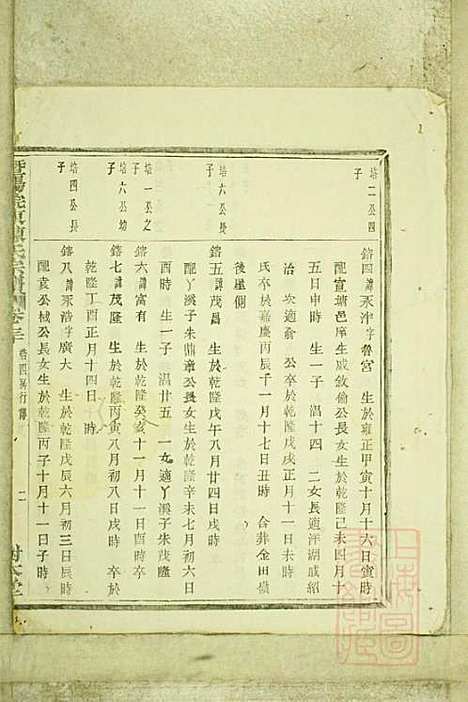 培二公四子
鎔四諱永沣字魯宮 生於雍正甲寅十月十六日寅時
配宣塘邑庠生威敘俞公長女生於乾隆己未四月十
五日申時 生一子 温十四 二女長適泙湖戚紹
治 次適俞 公卒於乾隆戊戌正月十一日亥時
氏卒於嘉慶丙辰千一月十七日丑時 合葬金田嶺
後崖側
培六公長子
鎔五諱茂昌 生於乾隆戊午八月廿四日戌時
配丫溪子朱鼎章公長女生於乾隆辛未七月初六日
酉時 生一子 温廿五 一女適丫溪子朱茂隆
培一公之子
鎔六諱富有 生於乾隆癸亥十一月十一日酉時卒
培六公幼子
鎔七諱茂隆 生於乾隆丙寅八月初八日戌時 卒於
乾隆丁酉正月十四日 時
培四公長子
鎔八諱永浩字廣大 生於乾隆戊辰六月初三日辰時
配袁公棫公長女生於乾隆丙子十月十一日戌時
暨陽 陳氏宗譜 卷三 卷四 行傳 二